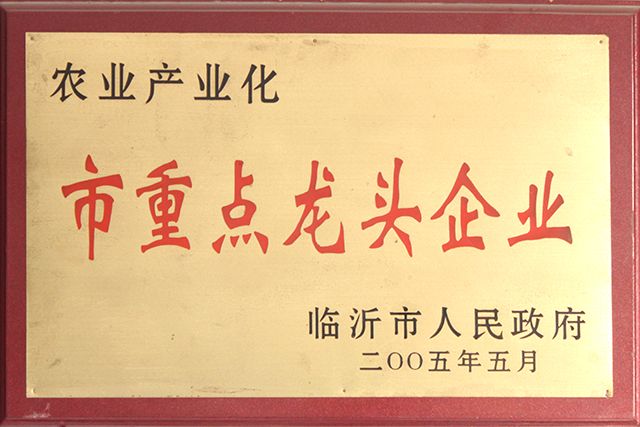 农业产业化
市重点龙头企业
临沂市人民政府
二〇〇五年五月